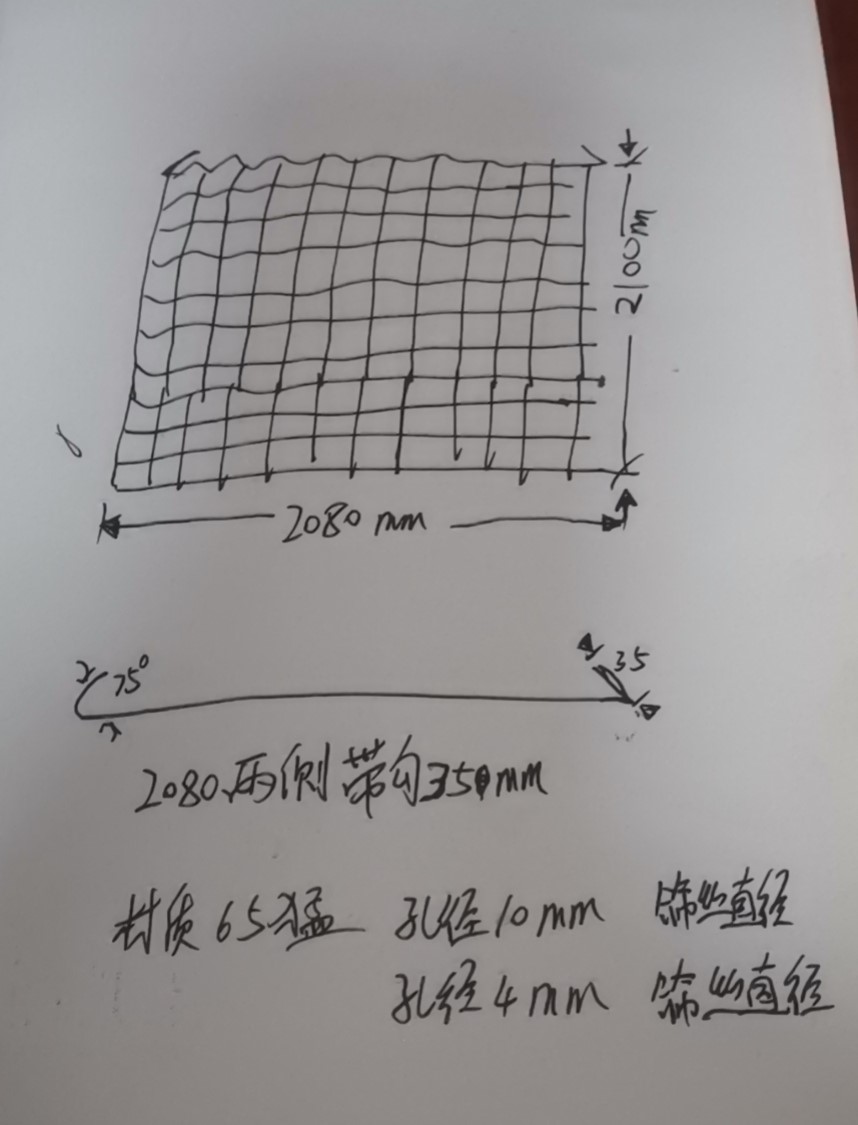 2100mm
2080mm
75°
35
2080两侧带勾35mm
材质65猛 孔径10mm 筛丝直径
孔径4mm 筛丝直径